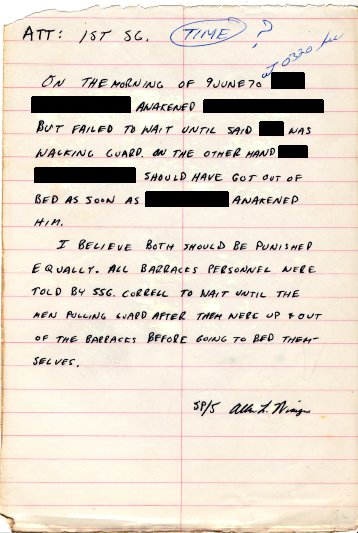 ATT: 1ST SG. TIME ?
at 0320
ON THE MORNING OF 9JUNE70
AWAKENED
BUT FAILED TO WAIT UNTIL SAID WAS
WALKING GUARD. ON THE OTHER HAND
SHOULD HAVE GOT OUT OF
BED AS SOON AS AWAKENED
HIM.
I BELIEVE BOTH SHOULD BE PUNISHED
EQUALLY. ALL BARRACKS PERSONNEL WERE
TOLD BY SSG. CORRELL TO WAIT UNTIL THE
MEN PULLING GUARD AFTER THEM WERE UP & OUT
OF THE BARRACKS BEFORE GOING TO BED THEM-
SELVES.
SP/5 Allen L.